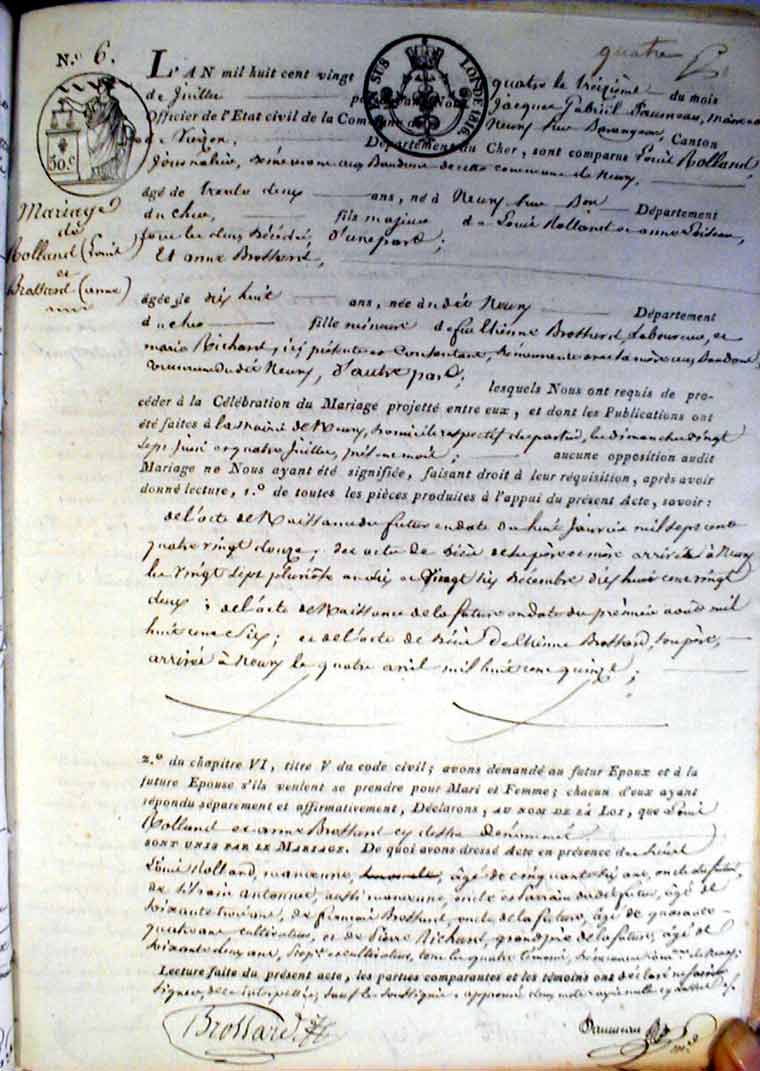 N.º 6.
quatre
EN SUS
LOI DE 1816.
50.c
Mariage
de
Rolland (Louis)
et
Brossard (anne)
L'AN mil huit cent vingt quatre le treizième du mois
de Juillet par devant Nous Jacques Gabriel maire
Officier de l'Etat civil de la Commune de Neuvy sur Barangeon, Canton
de Vierzon, Département du Cher, sont comparus Louis Rolland,
Journalier, demeurant aux Baudons de cette commune de Neuvy,
âgé de trente deux ans, né à Neuvy sur Département
du cher, fils majeur de Louis Rolland et anne Loiseau,
tous les deux décédés, d'une part;
Et anne Brossard,
âgée de dix huit ans, née à Neuvy Département
du cher fille mineure de feu Etienne Brossard, Laboureur, et
marie Richard, ici présente et Consentante, demeurante avec sa mère aux
commune du dit Neuvy, d'autre part;
lesquels Nous ont requis de pro-
céder à la Célébration du Mariage projetté entre eux, et dont les Publications ont
été faites à la mairie de Neuvy, domicile respectif des parties, les dimanches vingt
sept Juin et quatre Juillet, présent mois; aucune opposition audit
Mariage ne Nous ayant été signifiée, faisant droit à leur réquisition, après avoir
donné lecture, 1.º de toutes les pièces produites à l'appui du présent Acte, savoir:
de l'acte de Naissance du futur en date du huit Janvier mil sept cent
quatre vingt douze; des actes de décès de ses père et mère arrivés à Neuvy
les vingt sept pluviôse an dix et vingt six décembre dix huit cent vingt
deux; de l'acte de Naissance de la future en date du premier août mil
huit cent six; et de l'acte de décès d'Etienne Brossard, son père,
arrivé à Neuvy le quatre avril mil huit cent quinze;
2.º du chapitre VI, titre V du code civil; avons demandé au futur Epoux et à la
future Epouse s'ils veulent se prendre pour Mari et Femme; chacun d'eux ayant
répondu séparement et affirmativement, Déclarons, AU NOM DE LA LOI, que Louis
Rolland et anne Brossard cy dessus dénommés
SONT UNIS PAR LE MARIAGE. De quoi avons dressé Acte en présence de
Louis Rolland, manœuvre, âgé de cinquante six ans, oncle du futur,
de Silvain aussi manœuvre, oncle et parrain du dit futur, âgé de
soixante trois ans, de françois Brossard, oncle de la future, âgé de quarante
quatre ans cultivateur, et de Pierre Richard, grand père de la future, âgé de
soixante deux ans, cultivateur, tous les quatre témoins, demeurant de Neuvy;
Lecture faite du présent acte, les parties comparantes et les témoins ont déclaré ne savoir
signer, de ce interpellés, sauf le soussigné. approuvé deux mots rayés nuls
Brossard